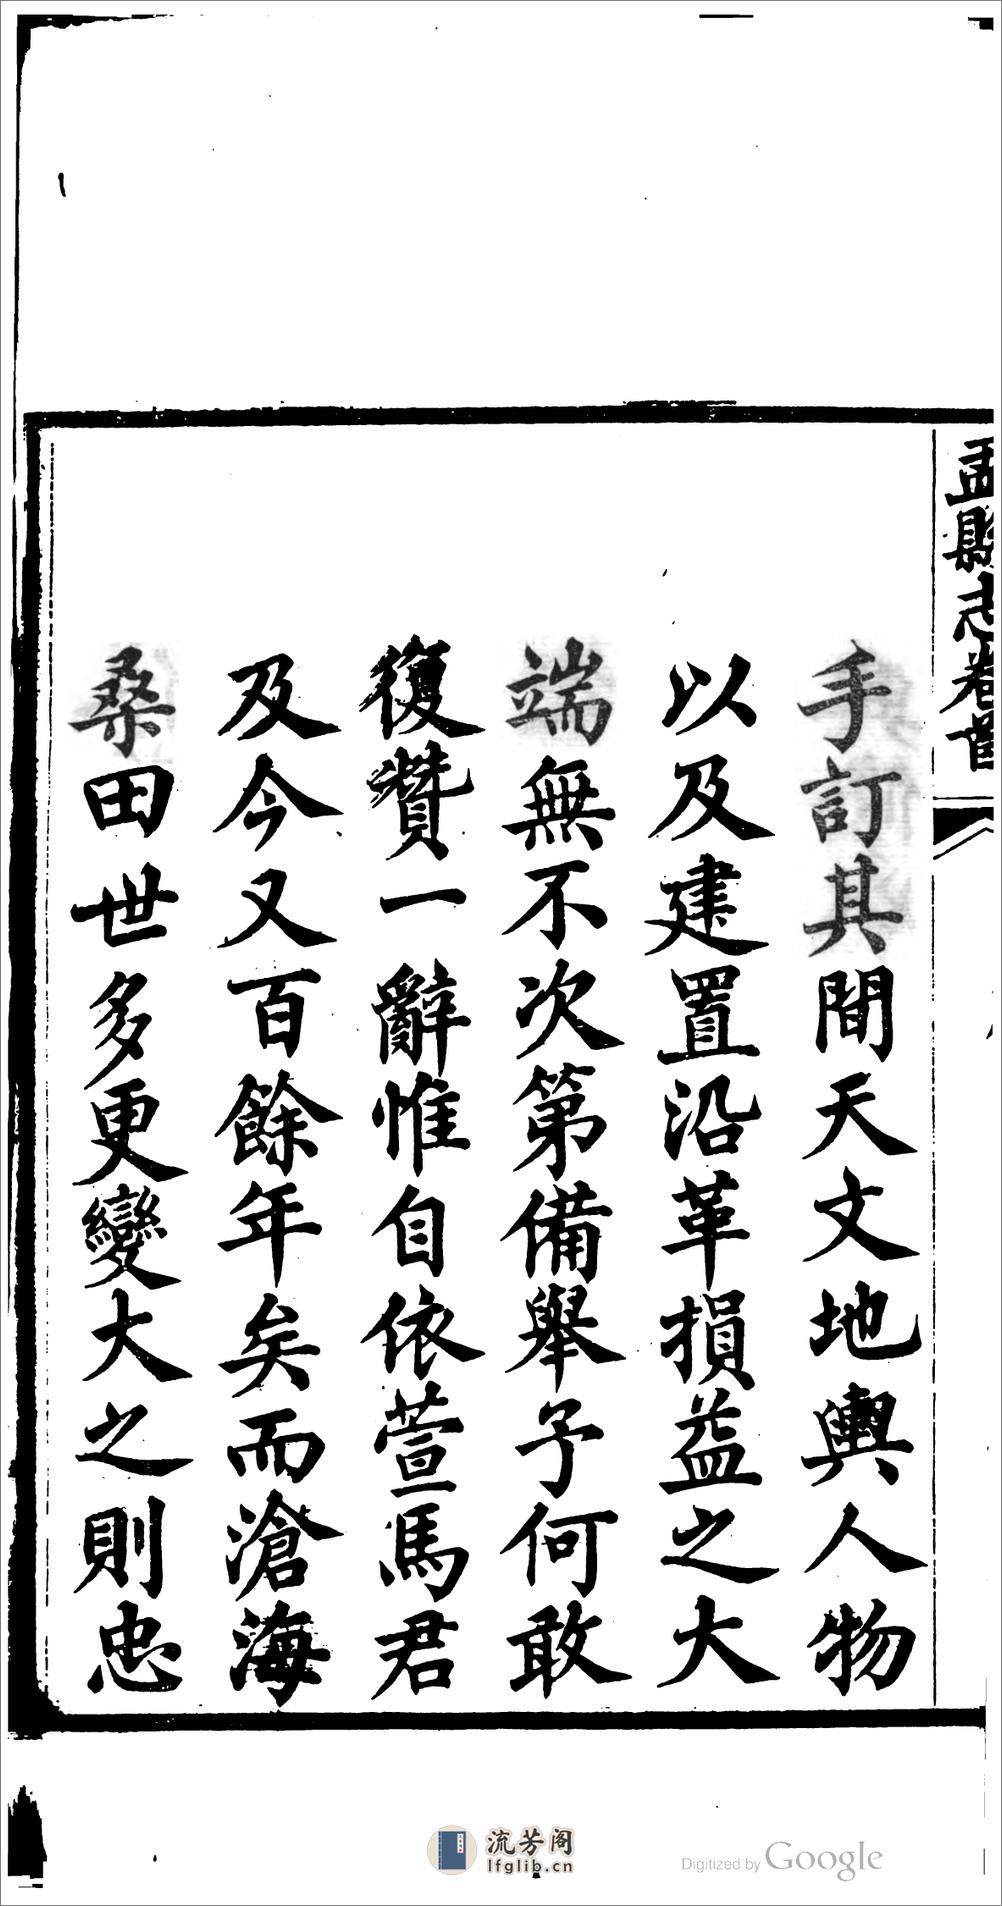 盂縣志卷首
手訂其間天文地輿人物
以及建置沿革損益之大
端無不次第備舉予何敢
復贊一辭惟自依萱馬君
及今又百餘年矣而滄海
桑田世多更變大之則忠
流芳阁
lfglib.cn
Digitized by Google